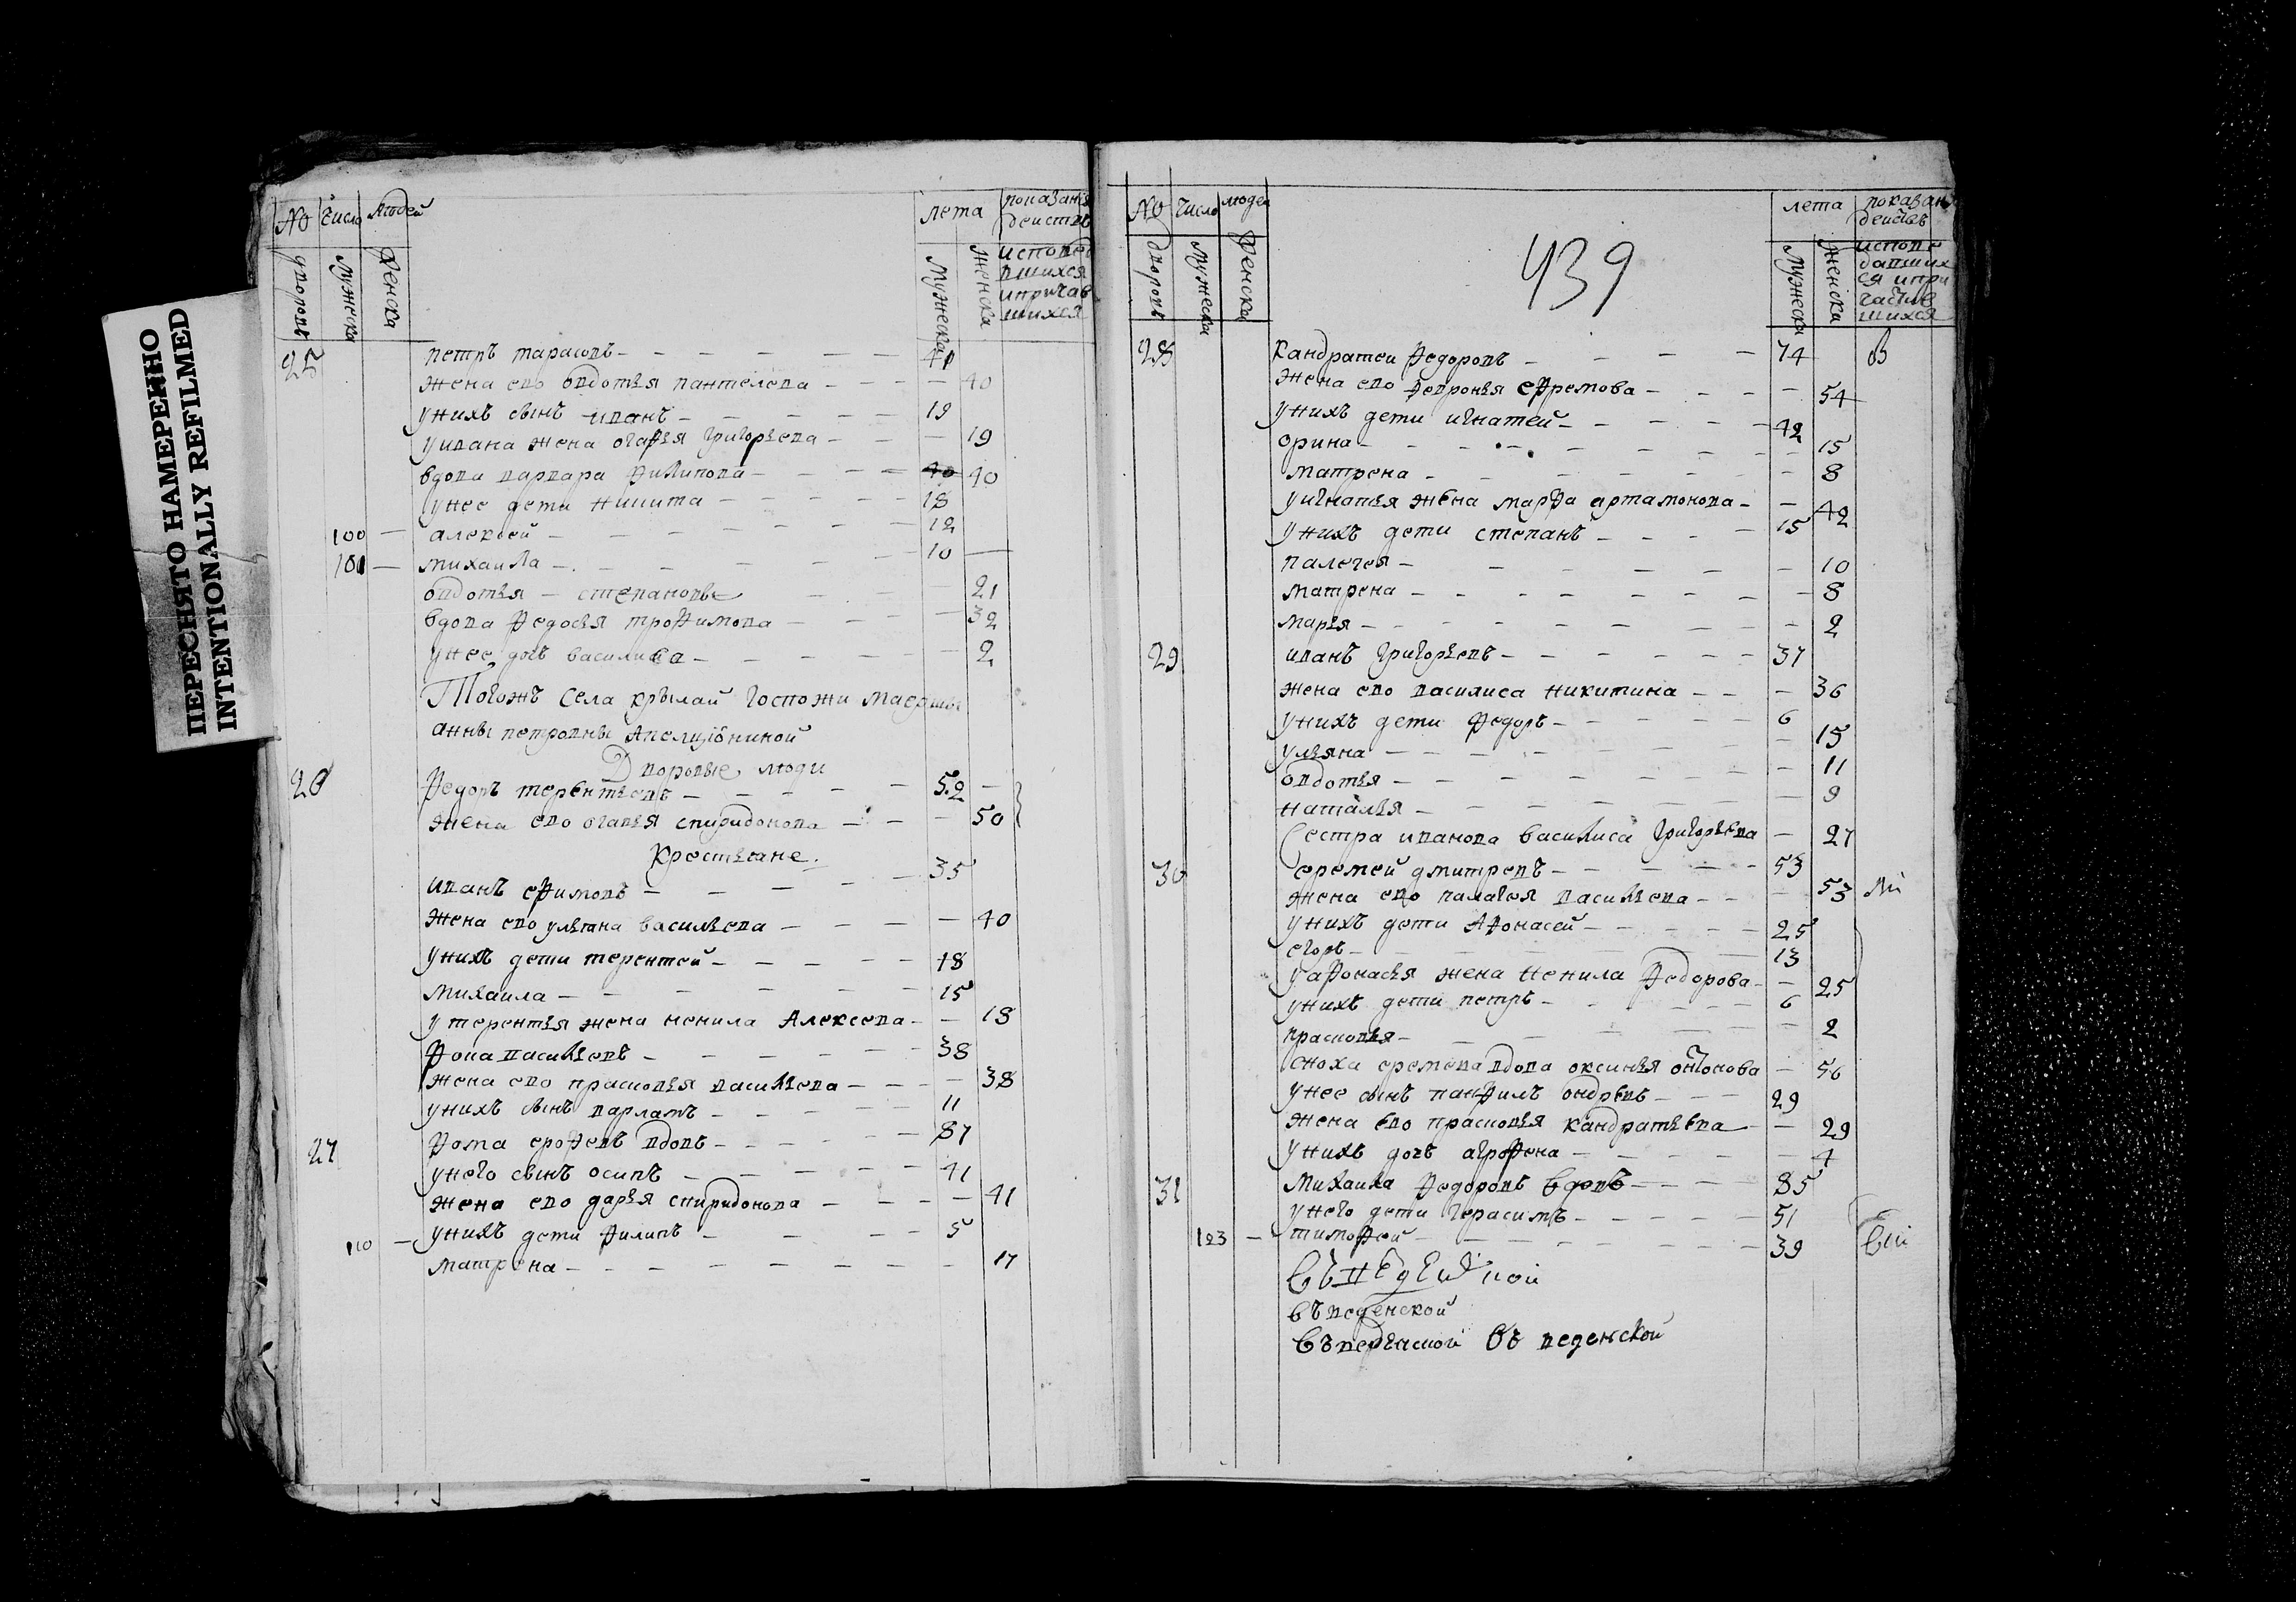 ПЕРЕСНЯТО НАМЕРЕННО
INTENTIONALLY REFILMED
№ число людей
лета показание действъ
дворовъ мужеска женска
мужеска женска исповедавшихся и причавшихся
25 петръ тарасовъ 41
жена ево овдотья пантелева 40
унихъ сынъ иванъ 19
уивана жена огафья григорьева 19
вдова варвара филипова 40 40
унее дети никита 18
100 алексей 12
101 михаила 10
овдотья степановы 21
вдова федосья трофимова 32
унее дочь василиса 2
Тогожъ села крылай госпожи маерши
анны петровны
Дворовые люди
26 федоръ терентьевъ 52
жена ево огапья спиридонова 50
Крестьяне
иванъ ефимовъ 35
жена ево ульяна васильева 40
унихъ дети терентей 18
михаила 15
утерентья жена ненила Алексева 18
фока васильевъ 38
жена ево прасковья васильева 38
унихъ сынъ варламъ 11
27 фома ерофевъ вдовъ 87
унего сынъ осипъ 41
жена ево дарья спиридонова 41
110 унихъ дети филипъ 5
матрена 17
№ число людей
439
лета показание действъ
дворовъ мужеска женска
мужеска женска исповедавшихся и причастившихся
28 кандратеи федоровъ 74 в
жена ево февронья ефремова 54
унихъ дети игнатей 42
орина 15
матрена 8
уигнатья жена марфа артамонова 42
унихъ дети степанъ 15
палегея 10
матрена 8
марья 2
29 иванъ григорьевъ 37
жена ево василиса никитина 36
унихъ дети федоръ 6
ульяна 15
овдотья 11
наталья 9
сестра иванова василиса григорьева 27
30 еремей дмитревъ 53
жена ево палагея васильева 53
унихъ дети Афонасей 25
егоръ 13
уафонасья жена ненила федорова 25
унихъ дети петръ 6
прасковья 2
сноха еремева вдова оксинья онтонова 56
унее сынъ панфилъ ондревъ 29
жена ево прасковья кандратьева 29
унихъ дочь агрофена 4
31 михаила федоровъ вдовъ 85
унего дети герасимъ 51
123 тимофей 39
въведенской
въ веденской